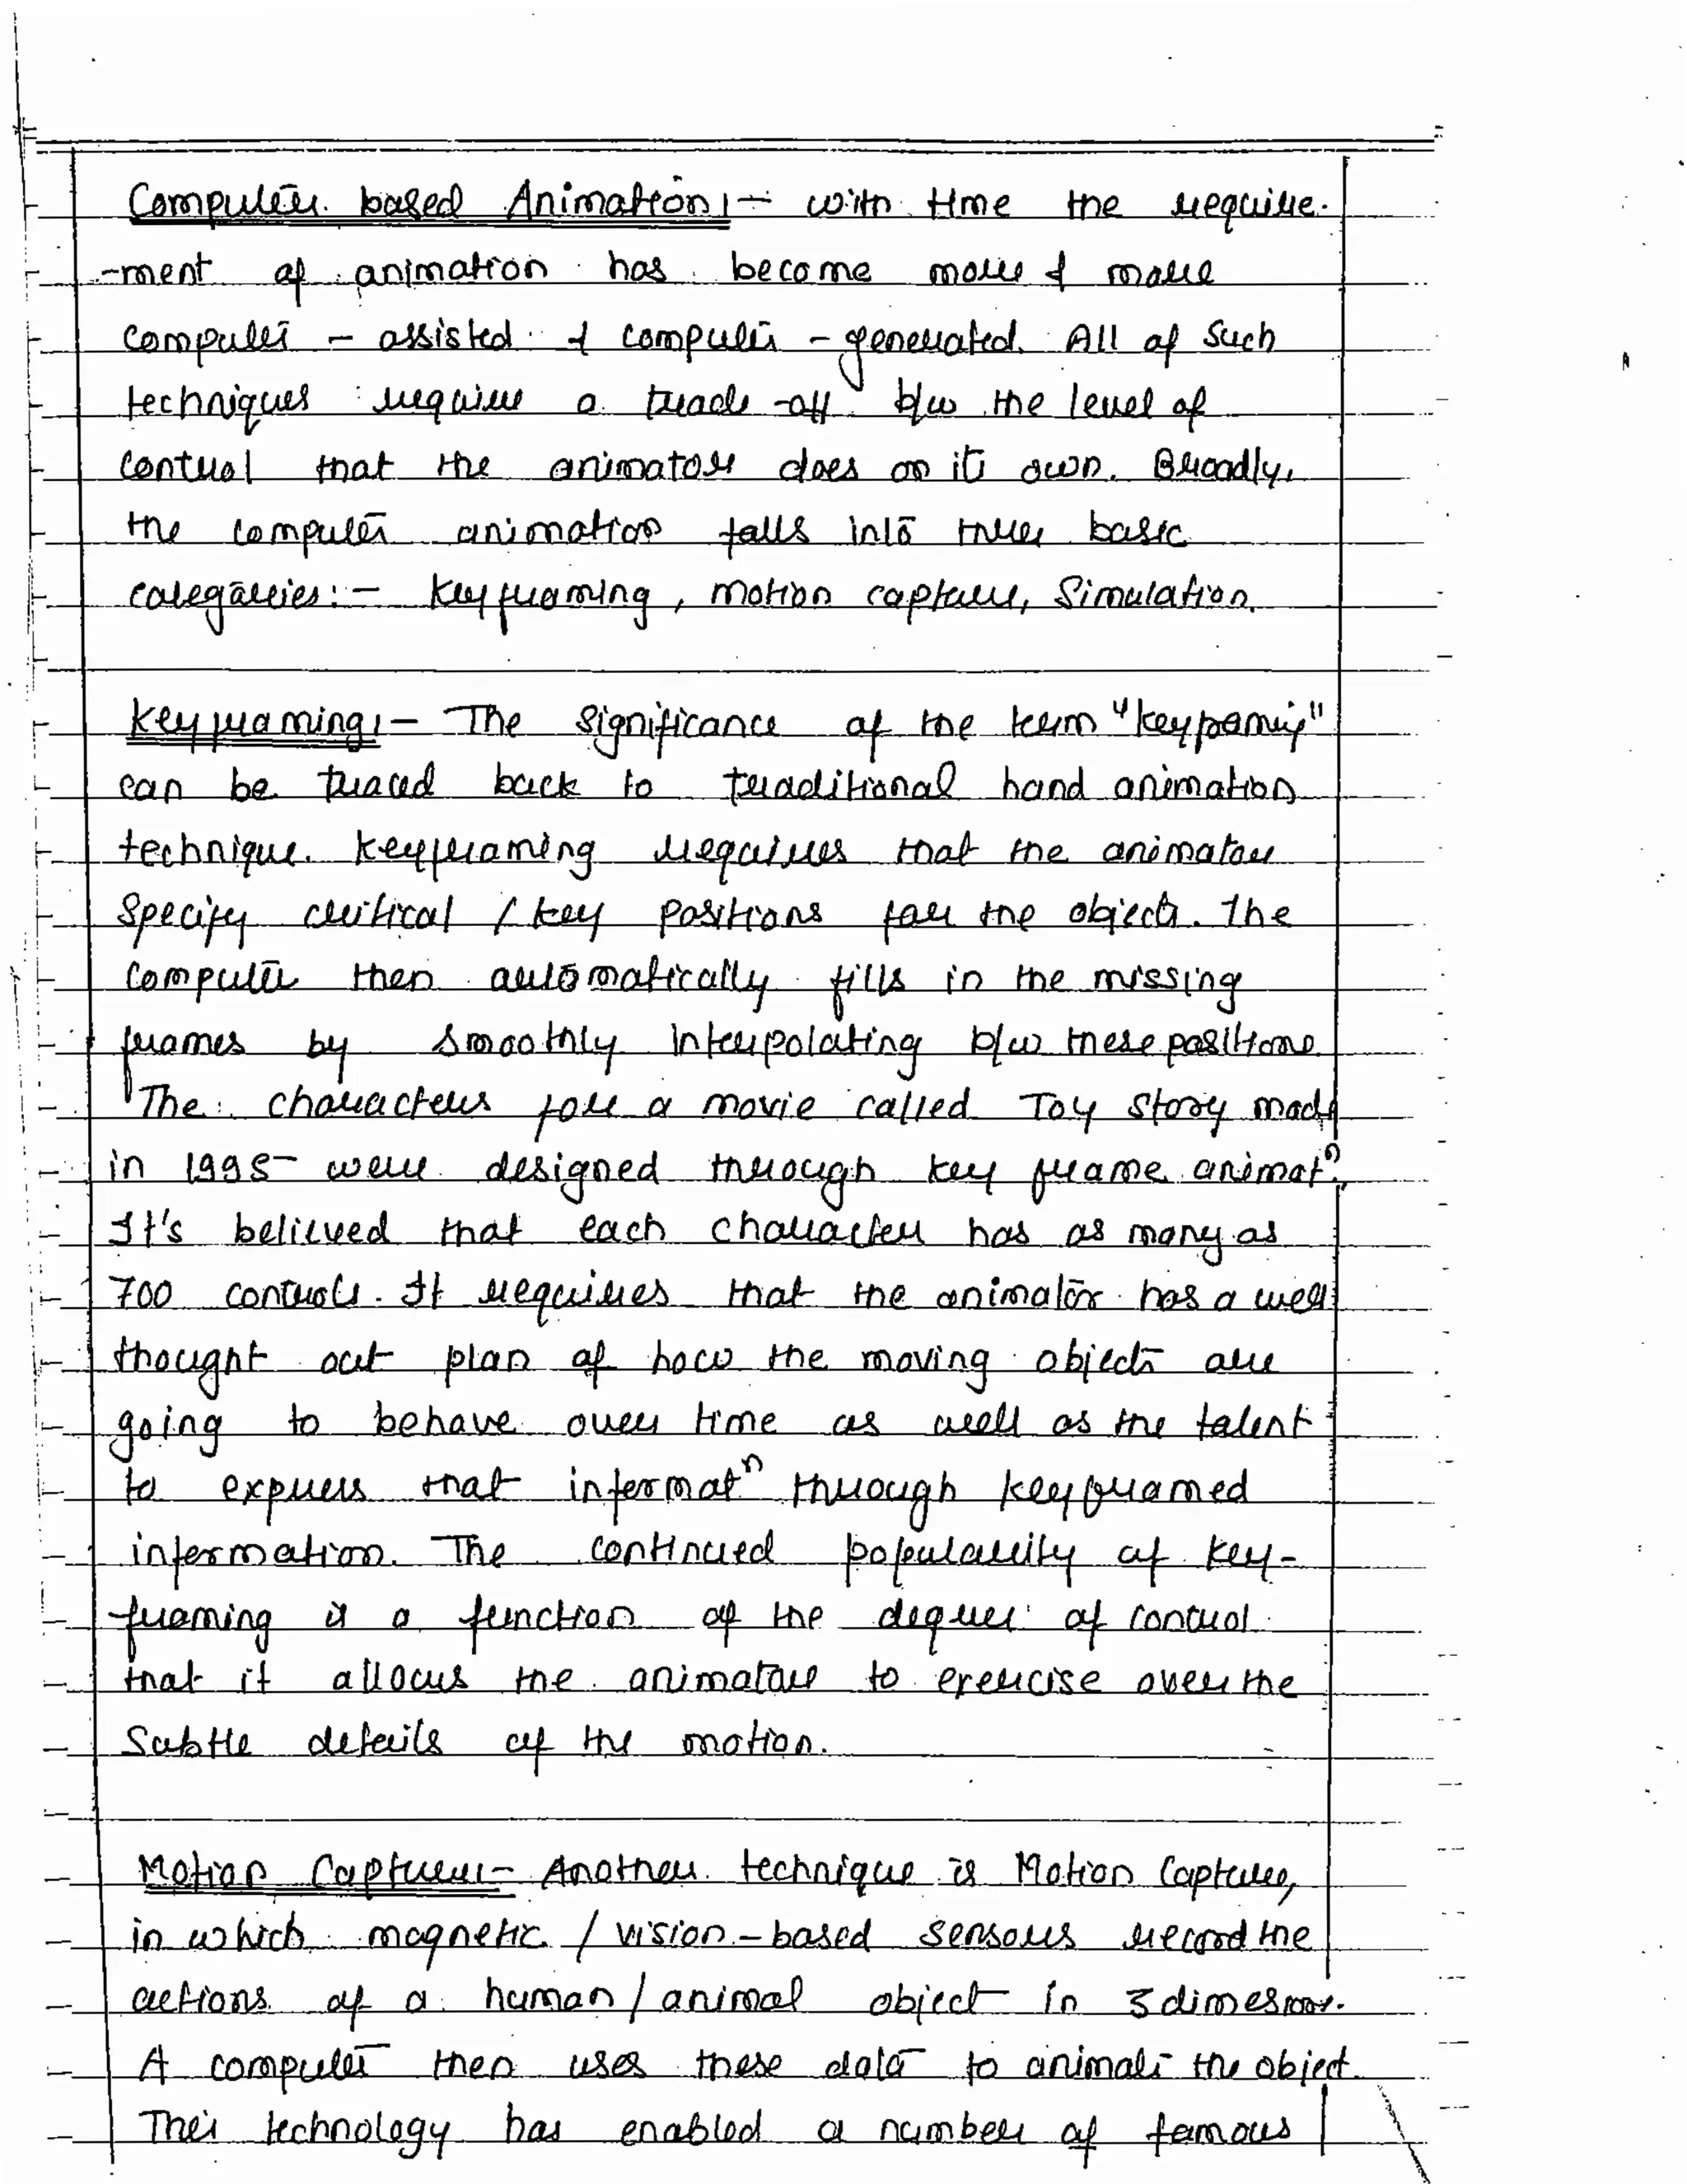 Computer based Animation:- with time the require-
-ment of animation has become more & more
computer - assisted & computer - generated. All of such
techniques require a trade-off b/w the level of
control that the animator does on its own. Broadly,
the computer animation falls into three basic
categories:- Keyframing, motion capture, Simulation.
Keyframing:- The significance of the term "keyframing"
can be traced back to traditional hand animation
technique. Keyframing requires that the animator
specify critical / key positions for the objects. The
computer then automatically fills in the missing
frames by smoothly interpolating b/w these positions
The characters for a movie called Toy Story made
in 1995 were designed through key frame animatⁿ.
It's believed that each character has as many as
700 controls. It requires that the animator has a well
thought out plan of how the moving objects are
going to behave over time as well as the talent
to express that informatⁿ through keyframed
information. The continued popularity of key-
framing is a function of the degree of control
that it allows the animator to exercise over the
subtle details of the motion.
Motion Capture:- Another technique is Motion Capture,
in which magnetic / vision-based sensors record the
actions of a human / animal object in 3 dimesions.
A computer then uses these data to animate the object.
This technology has enabled a number of famous